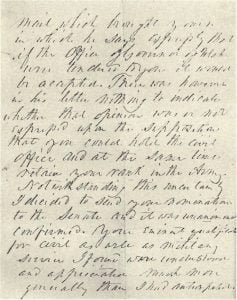 mail which brought yours
in which he says expressly that
if the Office of Governor of Utah
were tendered to you it would
be accepted. There was however
in his letter nothing to indicate
whether that opinion was or not
expressed upon the supposition
that you could hold the civil
office and at the same time
retain your rank in the Army.
Notwithstanding this
I decided to send your nomination
to the Senate and it was unanimously
confirmed. Your eminent qualifications
for civil as well as military
service I found were conclusive
and appreciated much more
generally than I had anticipated